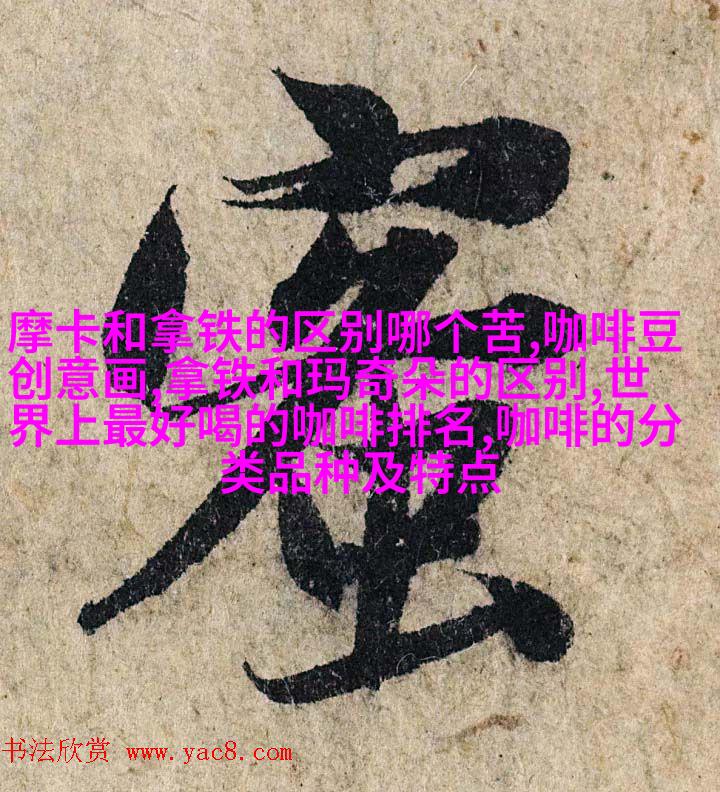 摩卡和拿铁的区别哪个苦,咖啡豆
创意画,拿铁和玛奇朵的区别,世
界上最好喝的咖啡排名,咖啡的分
类品种及特点
书法欣赏 www.yac8.com